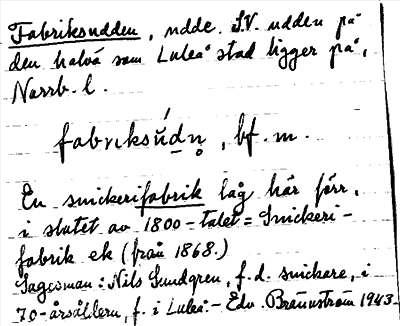 Fabriksudden, udde. S.V. udden på
den halvö som Luleå stad ligger på,
Norrb. l.
fabriksúdn̥, bf. m.
En snickerifabrik låg här förr,
i slutet av 1800-talet = Snickeri-
fabrik ek (från 1868.)
Sagesman: Nils Sundgren, f.d. snickare, i
70-årsåldern, f. i Luleå. - Edv. Brännström 1943.